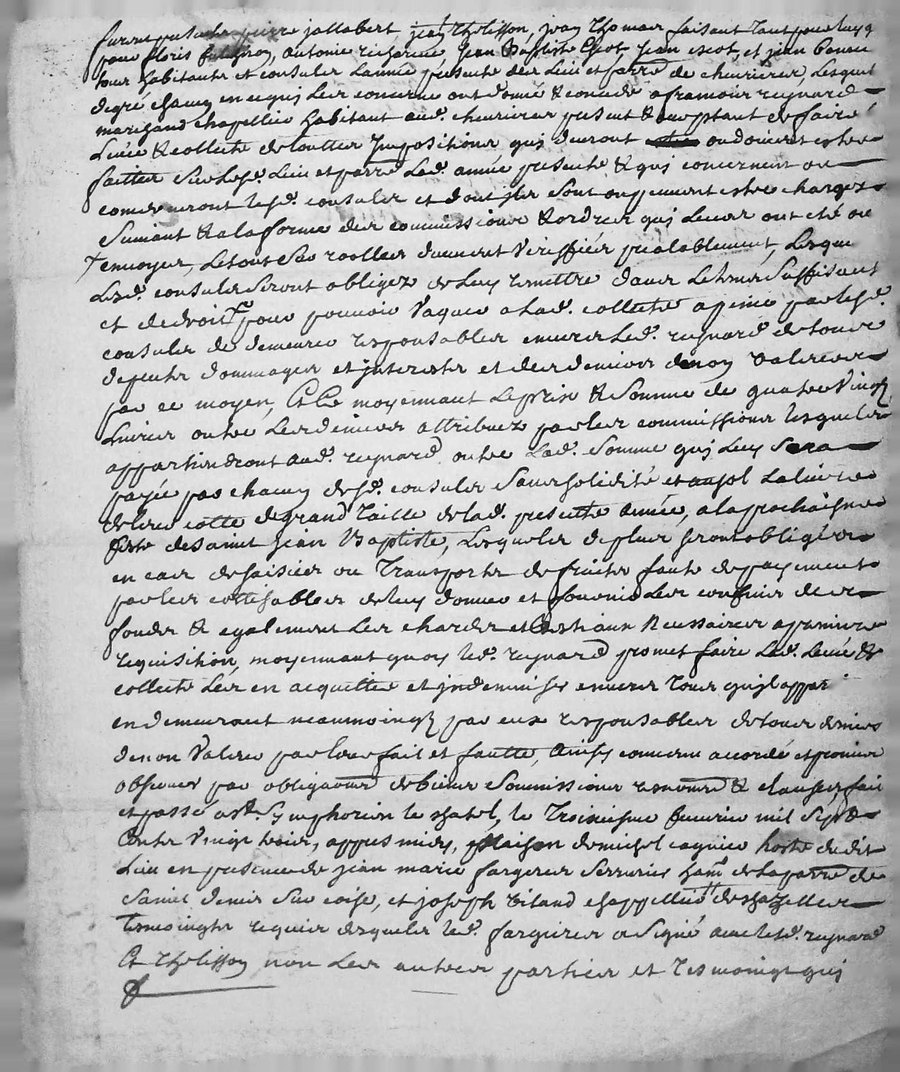 furent presents pierre jallabert, jean Thelisson, jean Thomas faisant tant pour luy q
pour floris, antoine, jean Baptiste Escot, jean escot, et jean
tous habitants et consuls l'année presente des lieu et parre de chevrieres, Lesquels
degré chacun en ce quj les concerne ont donné & concedé a reynard
marchand chapellier habitant aud. chevrieres present & acceptant de faire
Levée & collecte de touttes Impositions quj seront ou doivent estre
faittes sur lesd. Lieu et parre Lad. année presente & quj concernent ou
concerneront lesd. consuls et dont jls sont ou peuvent estre chargez
Suivant & a la forme des commissions & ordres quj Leurs ont eté ou
envoyez, Le tout Sur roolles duement veriffiés prealablement, Lesque
Lsd. consuls seront obligez de Luy remettre dans Le tems suffisant
et de droit pour pouvoir vaquer a Lad. collecte a peine par lesd.
consuls de demeurer responsables envers Led. reynard de tous
depents dommages et jnterests et des deniers de non valleurs
par ce moyen, Et Ce moyennant Le prix & Somme de quatre vingt
Livres outre Les deniers attribuez par les commissions lesquels
appartiendront aud. reynard outre Lad. Somme quj Luy sera
payée par chacun desd. consuls sans solidité et au sol la livre
de leur cotte de grand Taille de lad. presente année, a la prochaine
feste de saint jean Baptiste, Lesquels de plus seront obligés
en cas de saisies ou Transports de fruits faute de payement
par les cottisables de luy donner et fournir Les
& egalement Les chards et bestiaux necessaires a premiere
requisition, moyennant quoy led. reynard promet faire Lad. Levée &
collecte Les en acquitter et jndemniser envers tous qu'jl appar
en demeurant neanmoings par eux responsables de tous deniers
de non valeur par leur fait et fautte, Ainsy convenu accordé et promis
observer par obligaons de biens Soumissions renonons & clauses, fait
et passé a st. Symphorien le chatel, le Troisiesme feuvrier mil Sept
Cents Vingt trois, appres midy, Maison de michel hoste du dit
Lieu en presence de jean marie fargeres Serrurier ham. de la parre de
Saint denis Sur coise, et joseph chappellier de chazelles
Tesmoingts requis desquels led. fargeres a signé avec led. reynard
Et Thelisson non Les autres parties et tesmoings quj